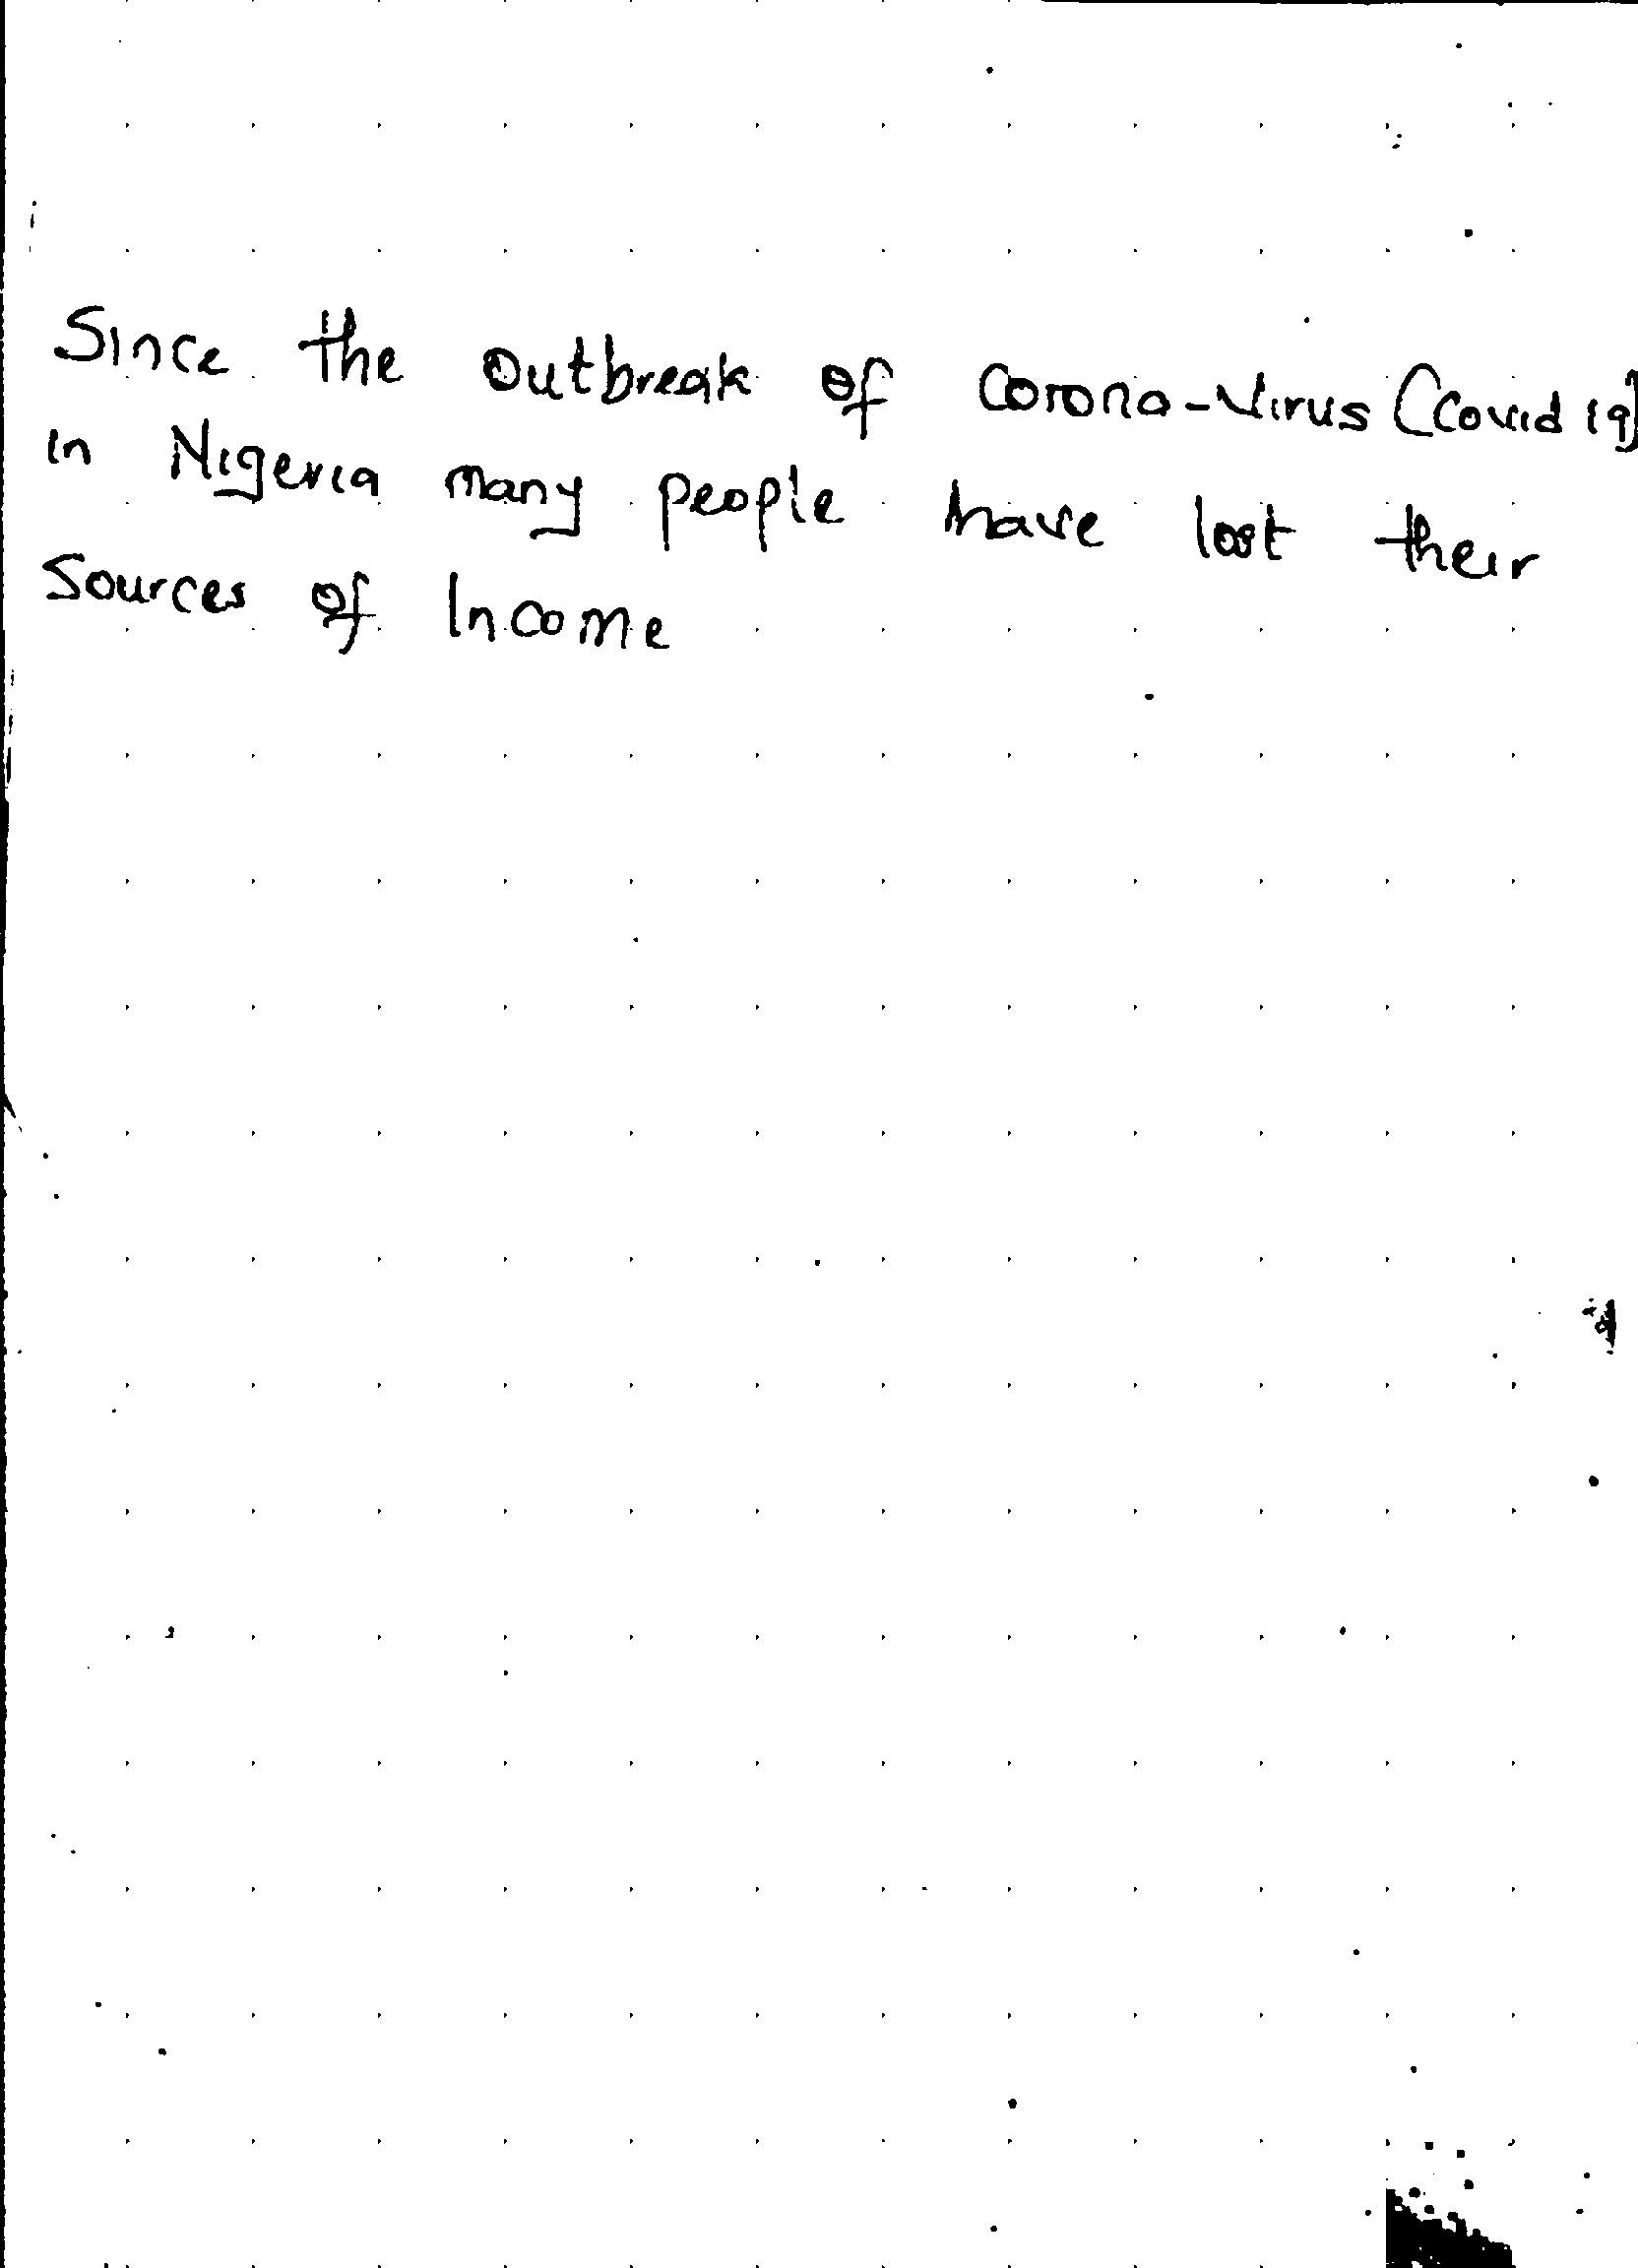 Since the outbreak of Corona-Virus (Covid 19)
in Nigeria many people have lost their
Sources of Income